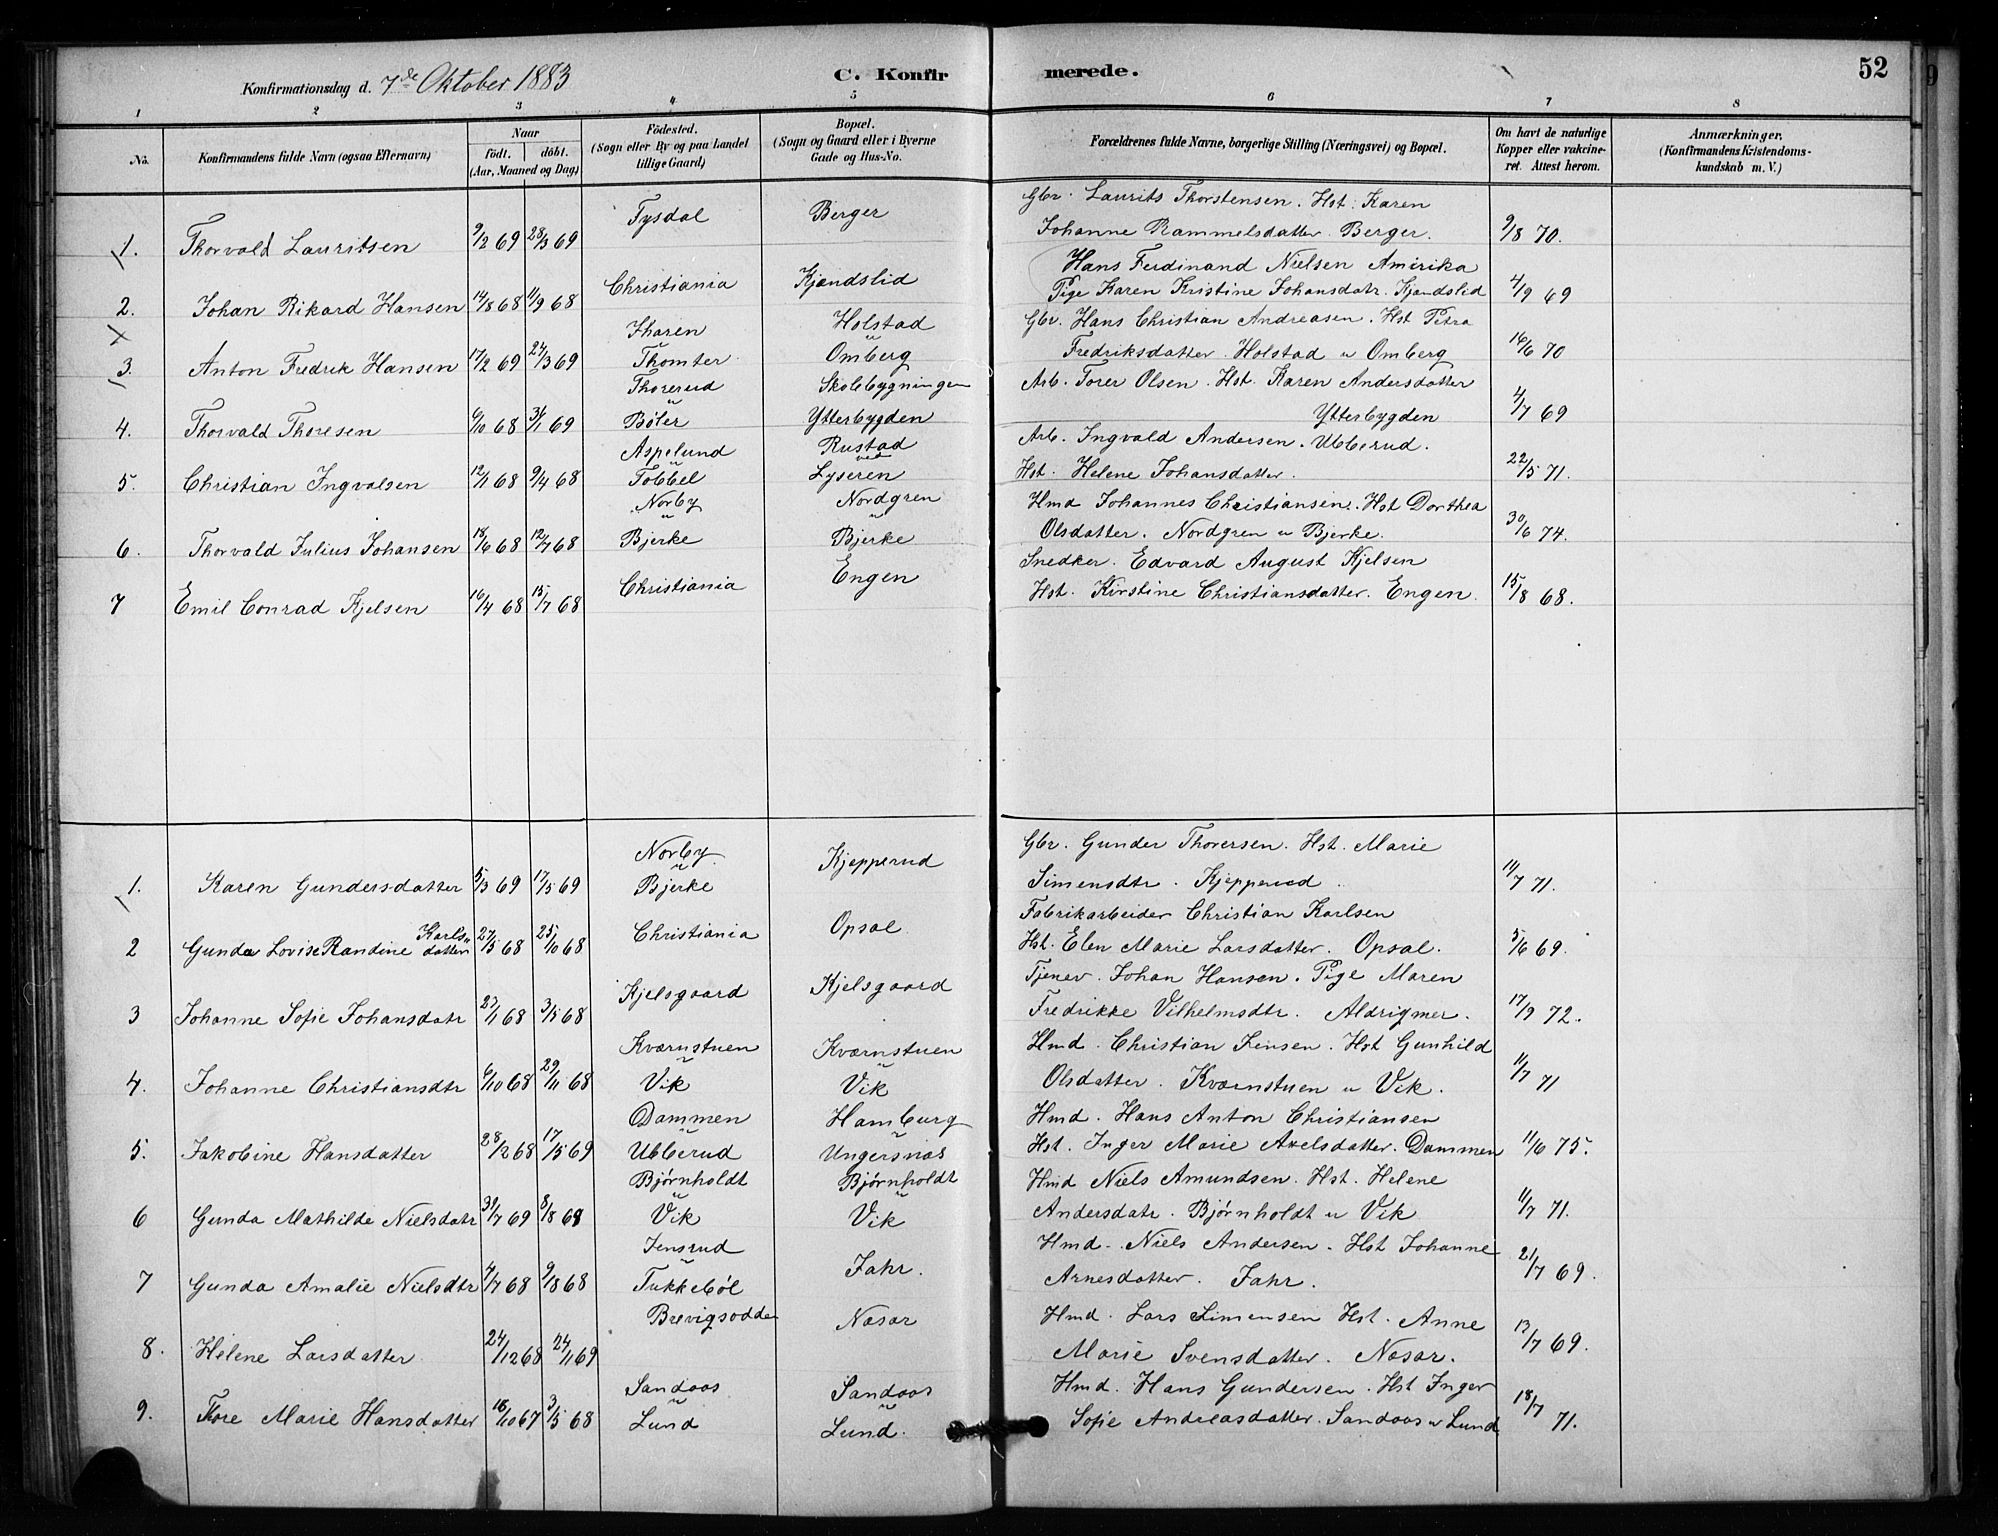 Konfirmationsdag d. 7de Oktober 1883
C. Konfirmerede.
52
1 2 3 4 5 6 7 8
No. Konfirmandens fulde Navn (ogsaa Efternavn) Naar födt. döbt. (Aar, Maaned og Dag) Födested. (Sogn eller By og paa Landet tillige Gaard) Bopæl. (Sogn og Gaard eller i Byerne Gade og Hus-No. Forældrenes fulde Navne, borgerlige Stilling (Næringsvei) og Bopæl. Om havt de naturlige Kopper eller vakcineret. Attest herom. Anmærkninger. (Konfirmandens Kristendomskundskab m. V.)
Tysdal Berger Gbr. Laurits Thorstensen. Hst. Karen
1. Thorvald Lauritsen 9/2 69 28/3 69 Johanne Rammelsdatter. Berger. 9/8 70.
Christiania Kjændslid Hans Ferdinand Nielsen Amirika
2. Johan Rikard Hansen 14/8 68 11/9 68 Pige Karen Kristine Johansdatr. Kjændslid 4/9 69
Skaren Holstad Gbr. Hans Christian Andreasen. Hst Petra
3. Anton Fredrik Hansen 17/2 69 24/3 69 u Thomter u Omberg Fredriksdatter. Holstad u Omberg 16/6 70
Thorerud Skolebygningen Arb. Torer Olsen. Hst. Karen Andersdatter
4. Thorvald Thoresen 6/10 68 31/1 69 u Bøler Ytterbygden Ytterbygden 4/7 69
Aspelund Rustad Arb. Ingvald Andersen. Ubberud.
5. Christian Ingvalsen 12/1 68 9/4 68 u Tobbel ved Lyseren Hst. Helene Johansdatter. 22/5 71.
Norby Nordgren Hmd Johannes Christiansen. Hst Dorthea
6. Thorvald Julius Johansen 18/6 68 12/7 68 u Bjerke u Bjerke Olsdatter. Nordgren u Bjerke. 30/6 74.
Christiania Engen Snedker. Edvard August Kjelsen
7 Emil Conrad Kjelsen 16/4 68 15/7 68 Hst. Kirstine Christiansdatter. Engen. 15/8 68.
Norby Kjepperud Gbr. Gunder Thoversen. Hst. Marie
1. Karen Gundersdatter 5/3 69 17/5 69 u Bjerke Simensdtr. Kjepperud. 11/7 71.
Christiania Opsal Fabrikarbeider Christian Karlsen
2 Gunda Lovise Randine Karlsdatter 27/5 68 25/10 68 Hst. Elen Marie Larsdatter. Opsal. 5/6 69.
Kjelsgaard Kjelsgaard Tjener. Johan Hansen. Pige Maren
3 Johanne Sofie Johansdatr 27/1 68 3/5 68 Fredrikke Vilhelmsdtr. Aldrigmer. 17/9 72.
Kværnstuen Kværnstuen Hmd. Christian Jensen. Hst Gunhild
4. Johanne Christiansdtr 6/10 68 29/11 68 u Vik u Vik Olsdatter. Kværnstuen u Vik. 11/7 71
Dammen Hamburg Hmd. Hans Anton Christiansen
5. Jakobine Hansdatter 28/12 68 17/5 69 u Ubberud u Ungersnæs Hst. Inger Marie Axelsdatter. Dammen 11/6 75.
Bjørnholdt Bjørnholdt Hmd Niels Amundsen. Hst. Helene
6 Gunda Mathilde Nielsdatr 30/7 69 8/8 68 u Vik u Vik Andersdatr. Bjørnholdt u Vik 11/7 71.
Jensrud Fahr. Hmd. Niels Andersen. Hst Johanne
7 Gunda Amalie Nielsdtr 4/7 68 9/8 68 u Tukkebøl Arnesdatter. Fahr. 21/7 69.
Brevigsodden Nasar Hmd. Lars Simensen Hst. Anne
8. Helene Larsdatter 24/12 68 24/1 69 Marie Svensdatter. Nasar. 13/7 69.
Sandaas Sandaas Hmd. Hans Gundersen. Hst Inger
9. Thore Marie Hansdatter 16/10 67 3/5 68 u Lund u Lund. Sofie Andreasdatter. Sandaas u Lund 18/7 71.